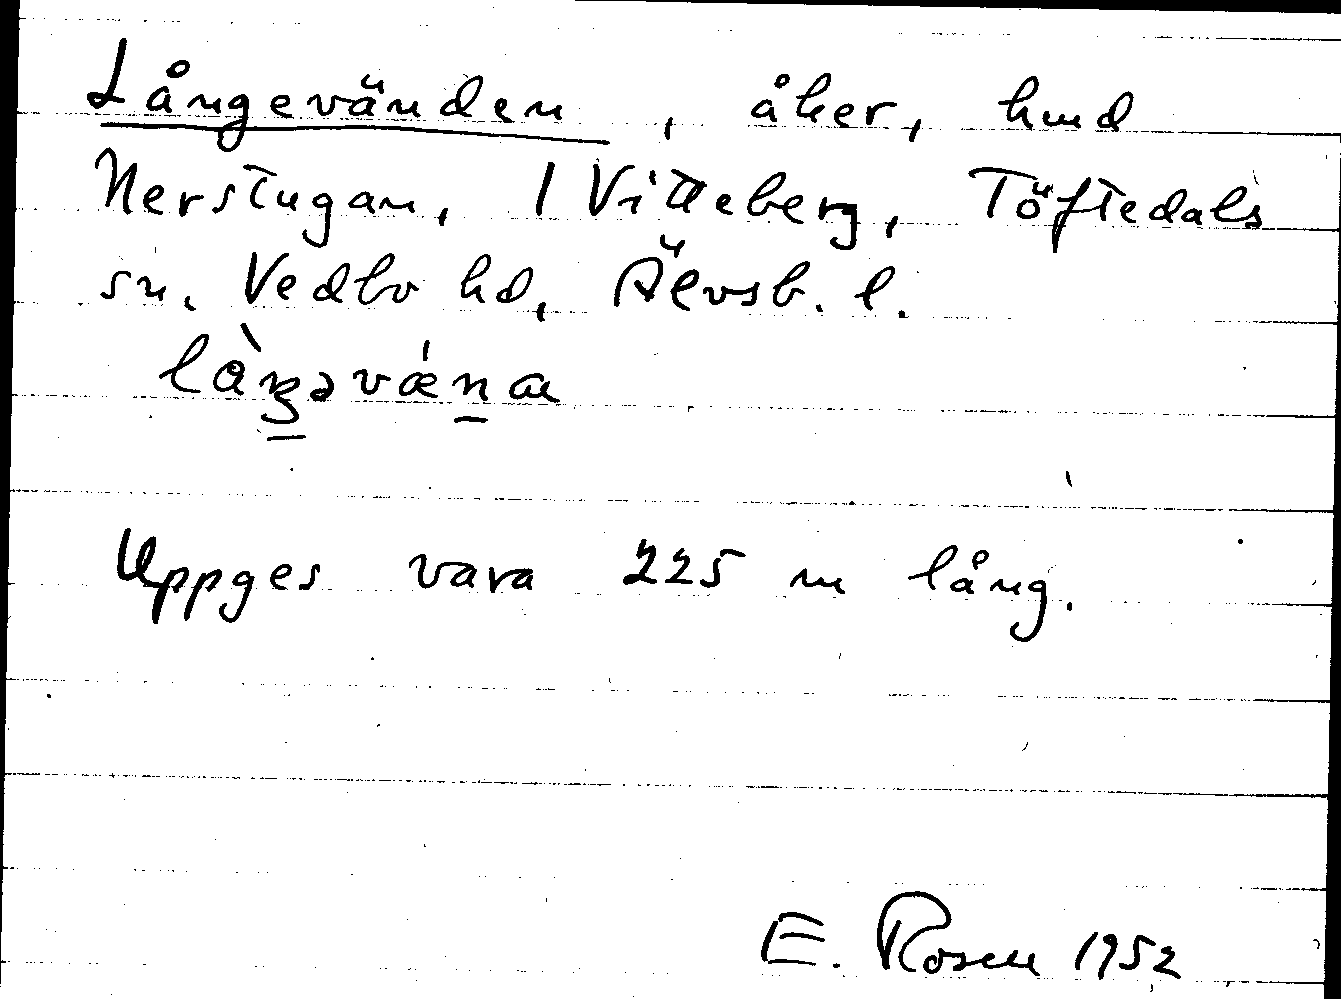 Långevänden, åker, hmd
Nerstugan, 1 Vitteberg, Töftedals
sn. Vedbo hd, Älvsb. l.
là̀ŋ̱əvǽṉa
Uppges vara 225 m lång.
E. Rosen 1952